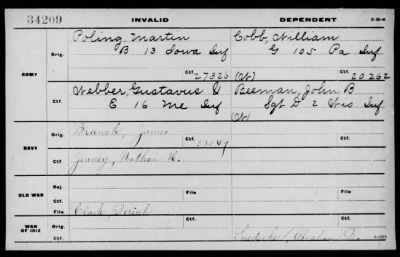 34209 INVALID DEPENDENT 3-10-6
Poling, Martin Cobb, William
Orig. B 13 Iowa Inf G 105 Pa Inf
ARMY 27326 (W) 20262
Ctf.
Webber, Gustavus Beeman, John B
E 16 Me Inf Sgt D 2 Wis Inf
Ctf. (W)
Orig. Branch, James
NAVY
Ctf. Jenney, Nathan
OLD WAR Rej. File File
Ctf. Clark,
WAR OF 1812 Orig.
Ctf.